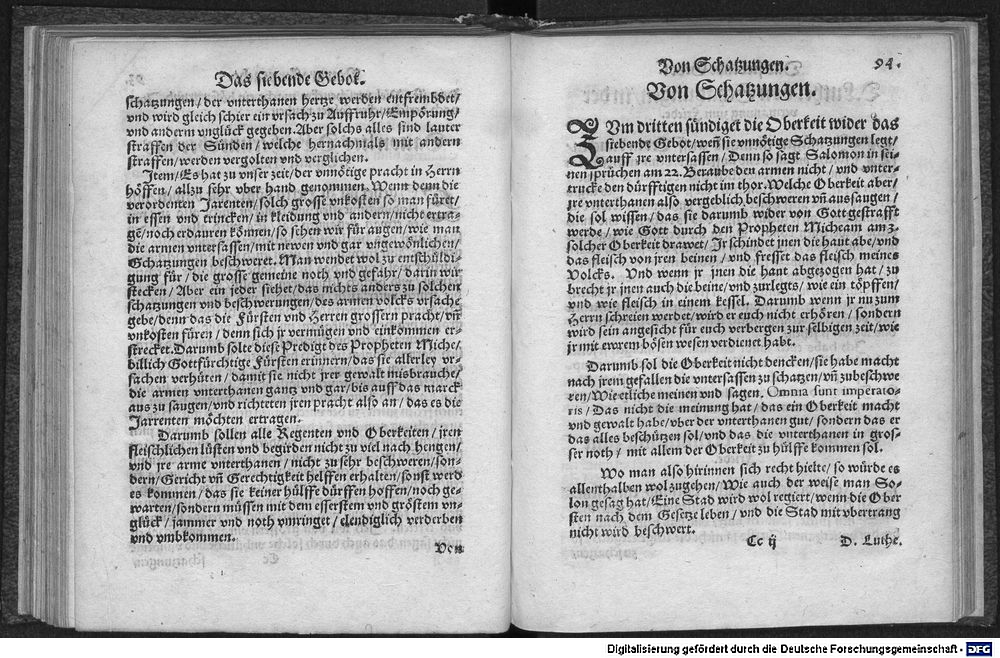 Das siebende Gebot.
schatzungen/ der vnterthanen hertze werden entfrembdet/
vnd wird gleich schier ein vrsach zu Auffruhr/ Empörung/
vnd anderm vnglück gegeben. Aber solchs alles sind lauter
straffen der Sünden/ welche hernachmals mit andern
straffen/ werden vergolten vnd verglichen.
Item/ Es hat zu vnser zeit/ der vnnötige pracht in Herrn
höffen/ allzu sehr vber hand genommen. Wenn denn die
verordenten Jarenten/ solch grosse vnkosten so man füret/
in essen vnd trincken/ in kleidung vnd andern/ nicht ertra-
gē/ noch erdauren können/ so sehen wir für augen/ wie man
die armen vntersassen/ mit newen vnd gar vngewönlichen/
Schatzungen beschweret. Man wendet wol zu entschüldi-
gung für/ die grosse gemeine noth vnd gefahr/ darin wir
stecken/ Aber ein jeder siehet/ das nichts anders zu solchen
schatzungen vnd beschwerungen/ des armen volcks vrsache
gebe/ denn das die Fürsten vnd Herren grössern pracht/ vñ
vnkosten füren/ denn sich jr vermügen vnd einkommen er-
strecket. Darumb solte diese Predigt des Propheten Miche/
billich Gottfürchtige Fürsten erinnern/ das sie allerley vr-
sachen verhüten/ damit sie nicht jrer gewalt misbrauche/
die armen vnterthanen gantz vnd gar/ bis auff das marck
aus zu saugen/ vnd richteten jren pracht also an/ das es die
Jarrenten möchten ertragen.
Darumb sollen alle Regenten vnd Oberkeiten/ jren
fleischlichen lüsten vnd begirden nicht zu viel nach hengen/
vnd jre arme vnterthanen/ nicht zu sehr beschweren/ son-
dern/ Gericht vñ Gerechtigkeit helffen erhalten/ sonst werd
es kommen/ das sie keiner hülffe dürffen hoffen/ noch ge-
warten/ sondern müssen mit dem esserstem vnd gröstem vn-
glück/ jammer vnd noth vmringet/ elendiglich verderben
vnd vmbkommen.
Von
Von Schatzungen. 94.
Von Schatzungen.
ZVm dritten sündiget die Oberkeit wider das
siebende Gebot/ weñ sie vnnötige Schatzungen legt/
auff jre vntersassen/ Denn so sagt Salomon in sei-
nen sprüchen am 22. Beraube den armen nicht/ vnd vnter-
trucke den dürfftigen nicht im thor. Welche Oberkeit aber/
jre vnterthanen also vergeblich beschweren vñ aussaugen/
die sol wissen/ das sie darumb wider von Gott gestrafft
werde/ wie Gott durch den Propheten Micheam am 3.
solcher Oberkeit drawet/ Jr schindet jnen die haut abe/ vnd
das fleisch von jren beinen/ vnd fresset das fleisch meines
Volcks. Vnd wenn jr jnen die haut abgezogen hat/ zu
brecht jr jnen auch die beine/ vnd zurlegts/ wie ein töpffen/
vnd wie fleisch in einem kessel. Darumb wenn jr nu zum
Herrn schreien werdet/ wird er euch nicht erhören/ sondern
wird sein angesicht für euch verbergen zur selbigen zeit/ wie
jr mit ewrem bösen wesen verdienet habt.
Darumb sol die Oberkeit nicht dencken/ sie habe macht
nach jrem gefallen die vntersassen zu schatzen/ vñ zubeschwe
ren/ Wie etliche meinen vnd sagen. Omnia sunt imperato-
ris/ Das nicht die meinung hat/ das ein Oberkeit macht
vnd gewalt habe/ vber der vnterthanen gut/ sondern das er
das alles beschützen sol/ vnd das die vnterthanen in gros-
ser noth/ mit allem der Oberkeit zu hülffe kommen sol.
Wo man also hirinnen sich recht hielte/ so würde es
allenthalben wol zugehen/ Wie auch der weise man So-
lon gesag hat/ Eine Stad wird wol regiert/ wenn die Ober
sten nach dem Gesetze leben/ vnd die Stad mit vbertrang
nicht wird beschwert.
Cc ij D. Luthe.
Digitalisierung gefördert durch die Deutsche Forschungsgemeinschaft - DFG